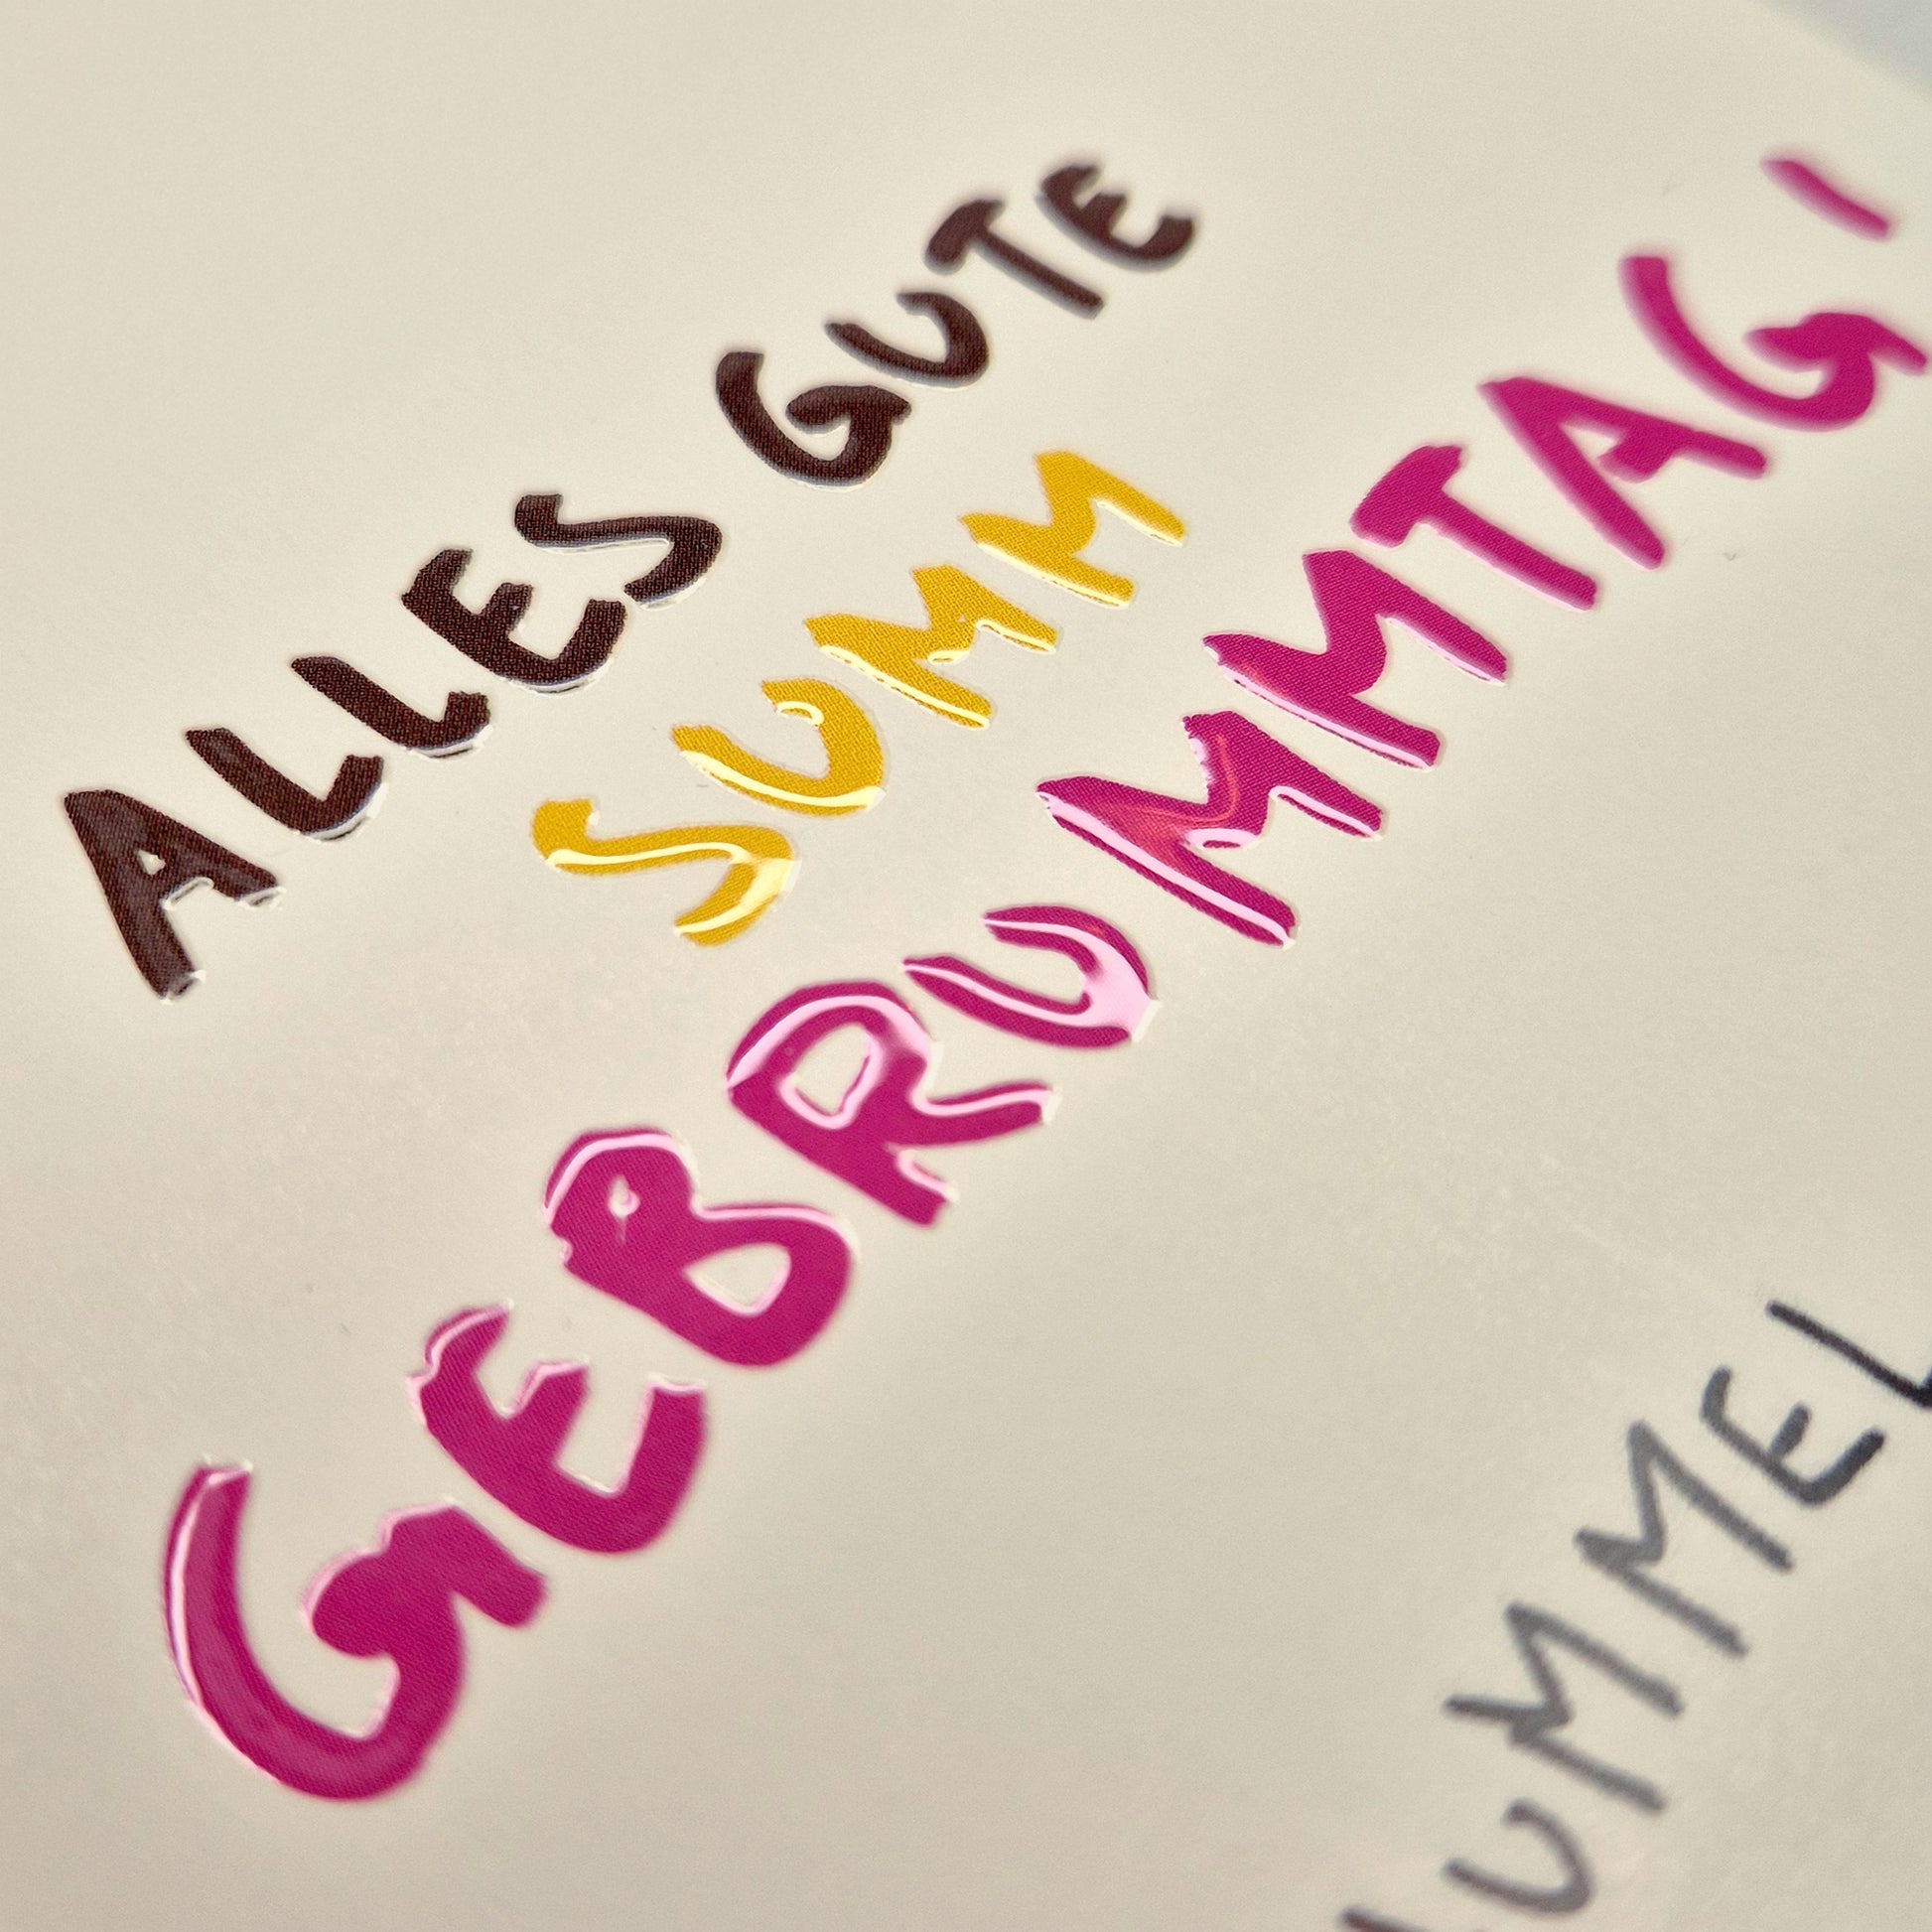 ALLES GUTE
SUMM
GEBRUMMTAG!
UMMEL